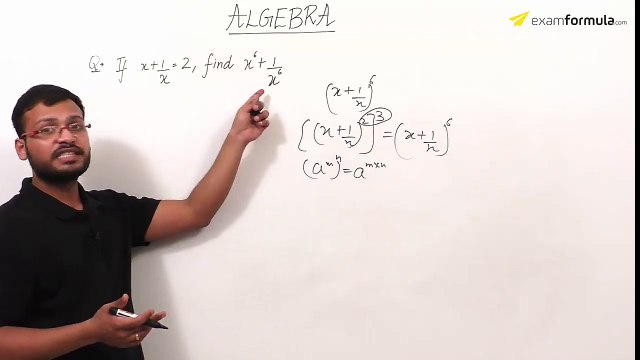 ALGEBRA
examformula.com
Q. If x+1/x=2, find x⁶+1/x⁶
(x+1/x)⁶
[(x+1/x)²]³=(x+1/x)⁶
(aᵐ)ⁿ=aᵐˣⁿ